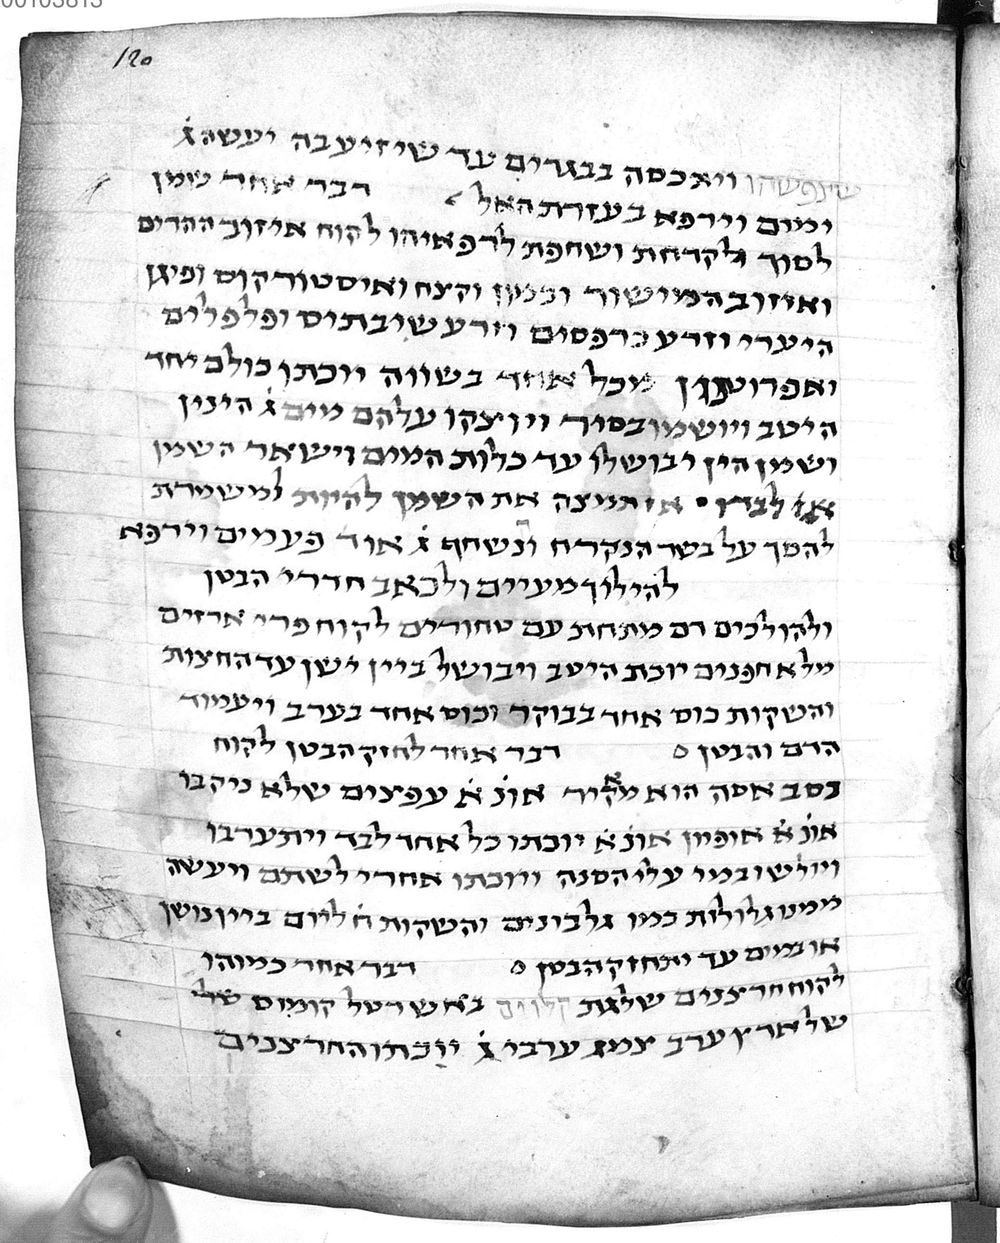 00103813
120
ויתכסה בבגדים עד שיזיע בה יעשה ג̇
ימים וירפא בעזרת האל דבר אחר שמן
לסוך לקדחת ושחפת לרפאיהו לקוח איזוב ההרים
ואיזוב המישור וכמון וקצח ואיסטורקוס ופיגן
היערי וזרע כרפסים וזרע שיבתיס ופלפלים
מכל אחד בשווה יוכתו כולם יחד
היטב ויושמו בסיר ויוצקו עלהם מים ג̇ הינין
ושמן הין ויבושלו עד כלות המים וישאר השמן
לבדו אז תמצה את השמן להיות למשמרת
להסך על בשר הנקדח ונשחף ג̇ או ד̇ פעמים וירפא
להילוך מעיים ולכאב חדרי הבטן
ולהולכים דם מתחת עם טחורים לקוח פרי ארזים
מלא חפנים יוכת היטב ויבושל ביין ישן עד החצות
והשקות כוס אחד בבוקר וכוס אחד בערב ויעמוד
הדם והבטן דבר אחר לחזק הבטן לקוח
בסב אסה הוא מאקיר אונ̇ א̇ עפצים שלא ניקבו
אונ̇ א̇ אופיון אונ̇ א̇ יוכתו כל אחד לבד ויתערבו
וילושו במי עלי הסנה ויוכתו אחרי לשתם ויעשה
ממנו גלולות כמו גלבונים והשקות ח̇ ליום ביין נושן
או במים עד יתחזק הבטן דבר אחר כמוהו
לקוח חרצנים שלגת קלוים באש רטל קומוס שלי
של ארץ ערב צמג ערבי ג̇ יוכתו החרצנים